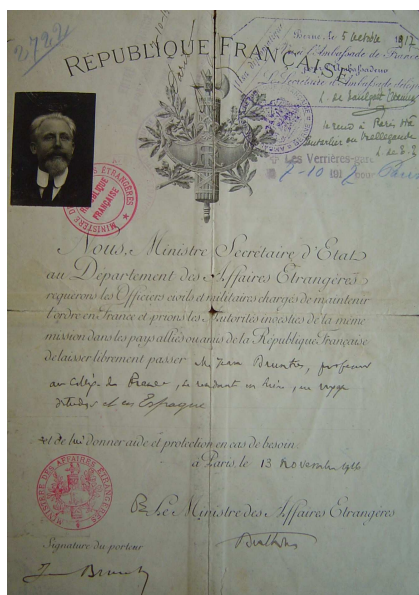 2722
Berne, le 5 octobre 1917
Vu à l'Ambassade de France
Le Secrétaire d'Ambassade délégué
se rend à Paris, Hté
REPUBLIQUE FRANÇAISE
Les Verrières-gare
7-10 1917 pour Paris
MINISTÈRE DES AFFAIRES ÉTRANGÈRES
RÉPUBLIQUE FRANÇAISE
Nous, Ministre Secrétaire d'Etat
au Département des Affaires Etrangères
requérons les Officiers civils et militaires chargés de maintenir
l'ordre en France et prions les Autorités investies de la même
mission dans les pays alliés ou amis de la République Française
de laisser librement passer Mr Jean Brunhes, professeur
au Collège de France, se rendant en
d'études et en Espagne
et de lui donner aide et protection en cas de besoin
à Paris, le 13 Novembre 1916
MINISTÈRE DES AFFAIRES ÉTRANGÈRES
Pr Le Ministre des Affaires Etrangères
Signature du porteur
Jean Brunhes